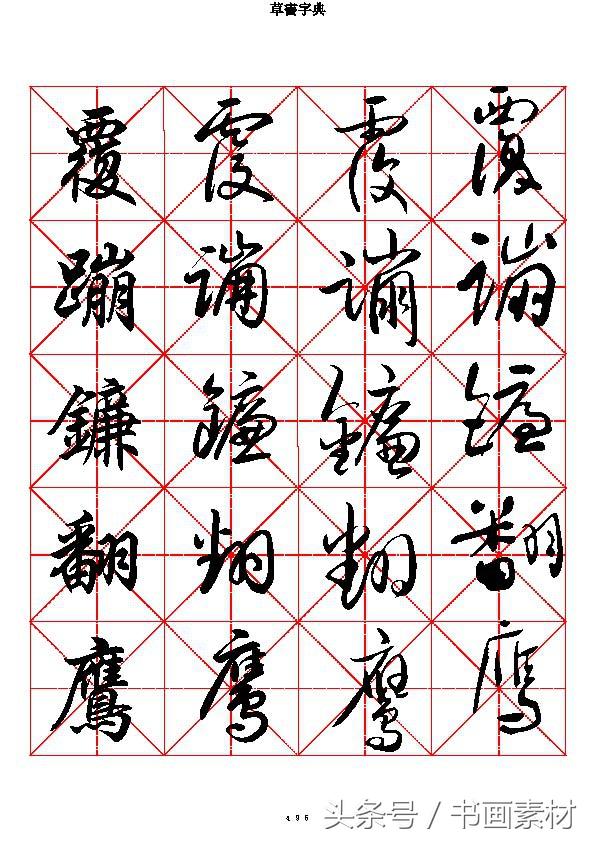 草書字典
覆 覆 覆 覆
蹦 蹦 蹦 蹦
鐮 鐮 鐮 鐮
翻 翻 翻 翻
鷹 鷹 鷹 鷹
496
头条号 / 书画素材